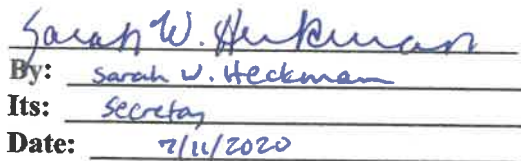 Sarah W. Heckman
By: Sarah W. Heckman
Its: Secretary
Date: 7/11/2020